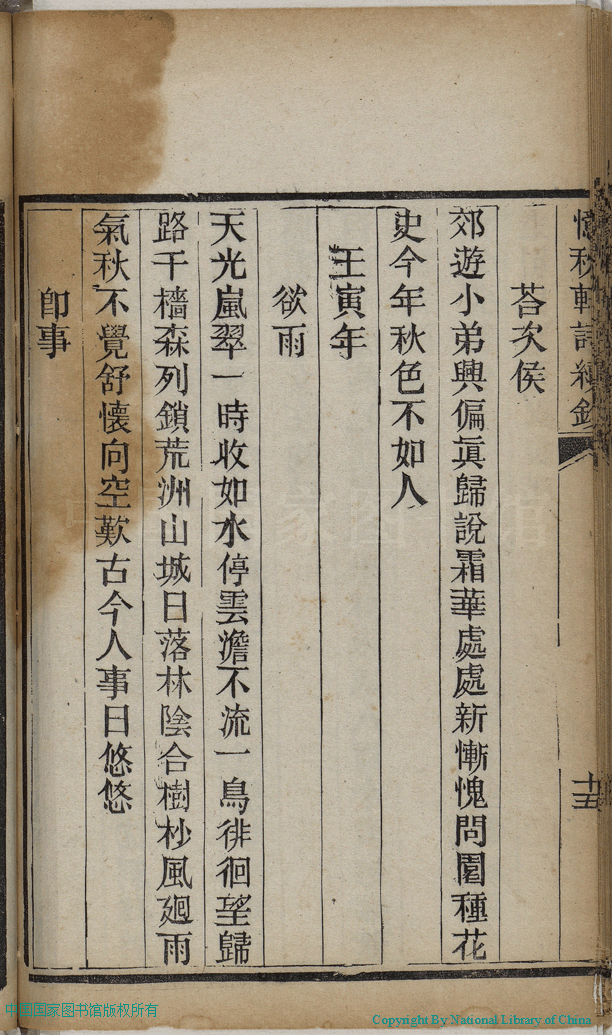 憶秋軒詩續鈔
十五
荅次侯
郊遊小弟興偏眞歸說霜華處處新慚愧問園種花
史今年秋色不如人
壬寅年
欲雨
天光嵐翠一時收如水停雲澹不流一鳥徘徊望歸
路千檣森列鎖荒洲山城日落林陰合樹杪風廻雨
氣秋不覺舒懷向空歎古今人事日悠悠
卽事
中国国家图书馆版权所有
Copyright By National Library of China